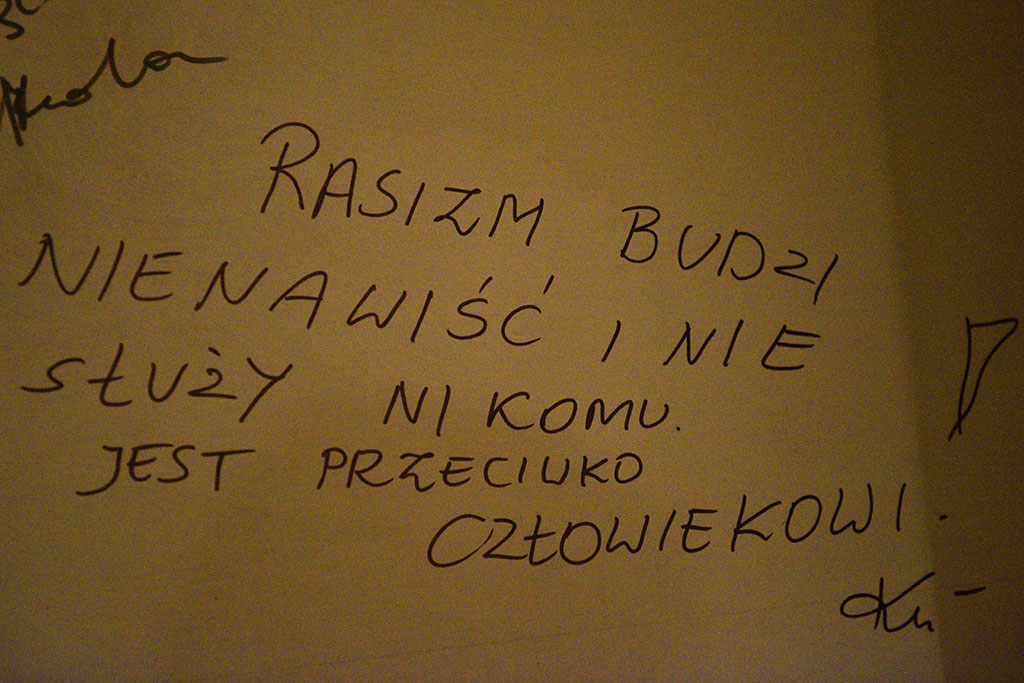 RASIZM BUDZI
NIENAWIŚĆ I NIE
SŁUŻY NIKOMU.
JEST PRZECIWKO
CZŁOWIEKOWI.